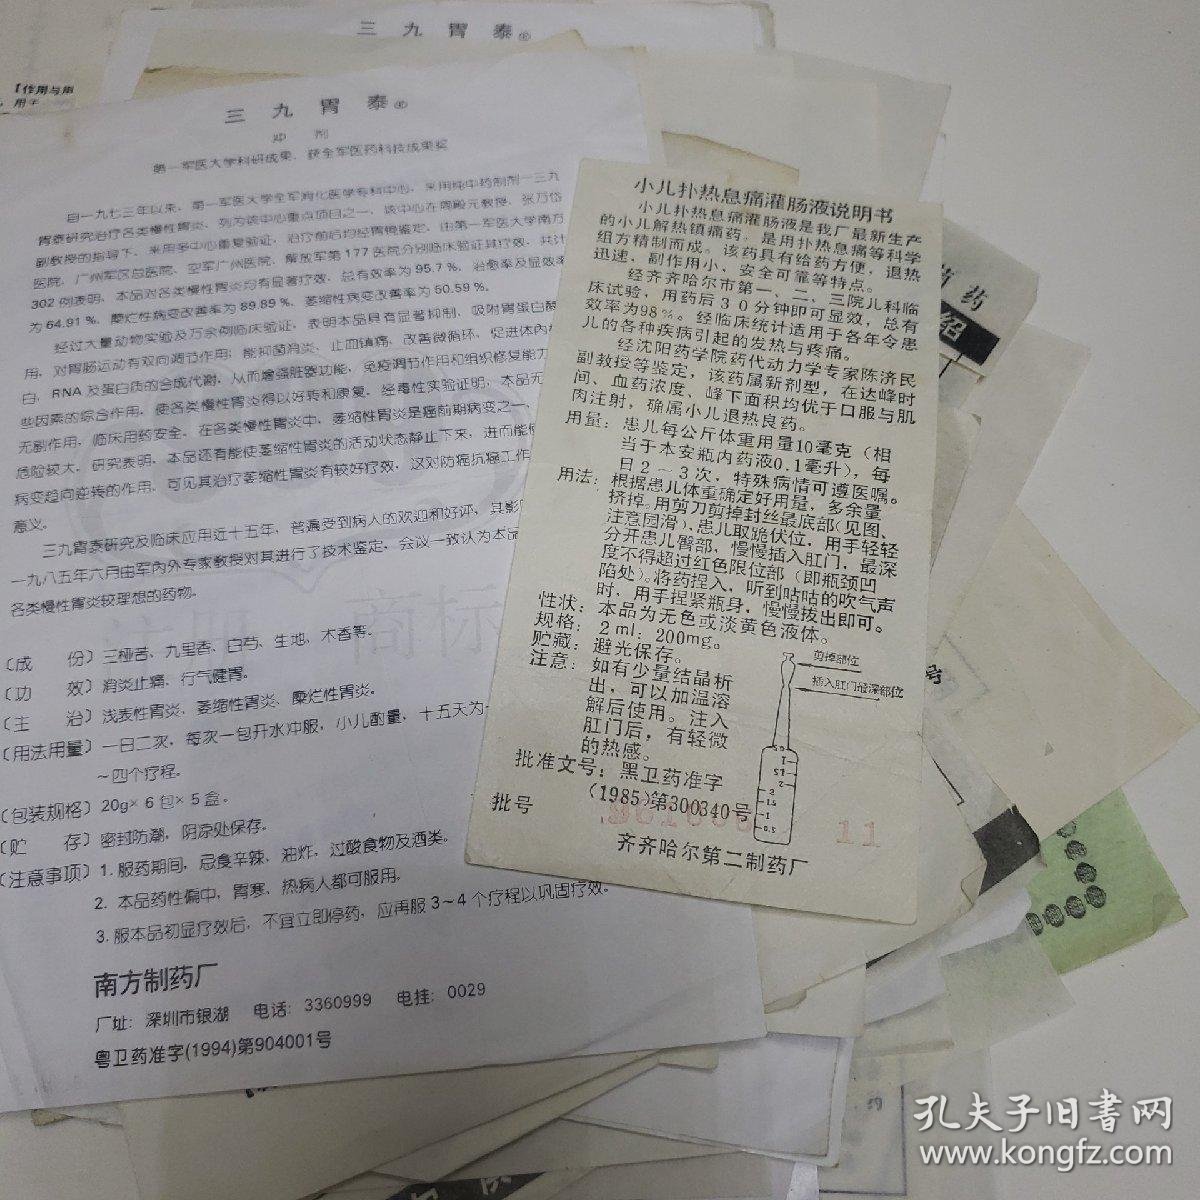 三九胃泰
【作用与用
用于
三九胃泰
冲剂
第一军医大学科研成果、获全军医药科技成果奖
自一九七三年以来，第一军医大学全军消化医学专科中心，采用纯中药制剂一三九
胃泰研究治疗各类慢性胃炎，列为该中心重点项目之一，该中心在周殿元教授、张万岱
副教授的指导下，采用多中心重复验证，治疗前后均经胃镜鉴定，由第一军医大学南方
医院，广州军区总医院，空军广州医院，解放军第177医院分别临床验证其疗效，共计
302例表明，本品对各类慢性胃炎均有显著疗效，总有效率为95.7%，治愈率及显效率
为64.91%，糜烂性病变改善率为89.89%，萎缩性病变改善率为50.59%。
经过大量动物实验及万余例临床验证，表明本品具有显著抑制、吸附胃蛋白酶
用，对胃肠运动有双向调节作用；能抑菌消炎、止血镇痛、改善微循环，促进体内核
白，RNA及蛋白质的合成代谢，从而增强脏器功能，免疫调节作用和组织修复能力
些因素的综合作用，使各类慢性胃炎得以好转和康复，经毒性实验证明，本品无
无副作用，临床用药安全。在各类慢性胃炎中，萎缩性胃炎是癌前期病变之一，
危险较大，研究表明，本品还有能使萎缩性胃炎的活动状态静止下来，进而能使
病变趋向逆转的作用，可见其治疗萎缩性胃炎有较好疗效，这对防癌抗癌工作
意义。
三九胃泰研究及临床应用近十五年，普遍受到病人的欢迎和好评，其影
一九八五年六月由军内外专家教授对其进行了技术鉴定，会议一致认为本品
各类慢性胃炎较理想的药物。
注册商标
〔成份〕三桠苦、九里香、白芍、生地、木香等。
〔功效〕消炎止痛，行气健胃。
〔主治〕浅表性胃炎、萎缩性胃炎、糜烂性胃炎。
〔用法用量〕一日二次，每次一包开水冲服，小儿酌量，十五天为一
～四个疗程。
〔包装规格〕20g×6包×5盒。
〔贮存〕密封防潮，阴凉处保存。
〔注意事项〕1.服药期间，忌食辛辣、油炸，过酸食物及酒类。
2.本品药性偏中，胃寒、热病人都可服用。
3.服本品初显疗效后，不宜立即停药，应再服3～4个疗程以巩固疗效。
南方制药厂
厂址：深圳市银湖 电话：3360999 电挂：0029
粤卫药准字(1994)第904001号
小儿扑热息痛灌肠液说明书
小儿扑热息痛灌肠液是我厂最新生产
的小儿解热镇痛药，是用扑热息痛等科学
组方精制而成。该药具有给药方便，退热
迅速、副作用小、安全可靠等特点。
经齐齐哈尔市第一、二、三院儿科临
床试验，用药后30分钟即可显效，总有
效率为98%。经临床统计适用于各年令患
儿的各种疾病引起的发热与疼痛。
经沈阳药学院药代动力学专家陈济民
副教授等鉴定，该药属新剂型，在达峰时
间、血药浓度、峰下面积均优于口服与肌
肉注射，确属小儿退热良药。
用量：患儿每公斤体重用量10毫克（相
当于本安瓶内药液0.1毫升），每
日2～3次，特殊病情可遵医嘱。
用法：根据患儿体重确定好用量，多余量
挤掉。用剪刀剪掉封丝最底部（见图、
注意园滑）。患儿取跪伏位，用手轻轻
分开患儿臀部，慢慢插入肛门，最深
度不得超过红色限位部（即瓶颈凹
陷处）。将药捏入，听到咕咕的吹气声
时，用手捏紧瓶身，慢慢拔出即可。
性状：本品为无色或淡黄色液体。
规格：2ml：200mg。
贮藏：避光保存。
注意：如有少量结晶析
出，可以加温溶
解后使用。注入
肛门后，有轻微
的热感。
剪掉部位
插入肛门最深部位
批准文号：黑卫药准字
(1985)第300340号
批号
11
齐齐哈尔第二制药厂
药
绍
号
孔夫子旧书网
www.kongfz.com